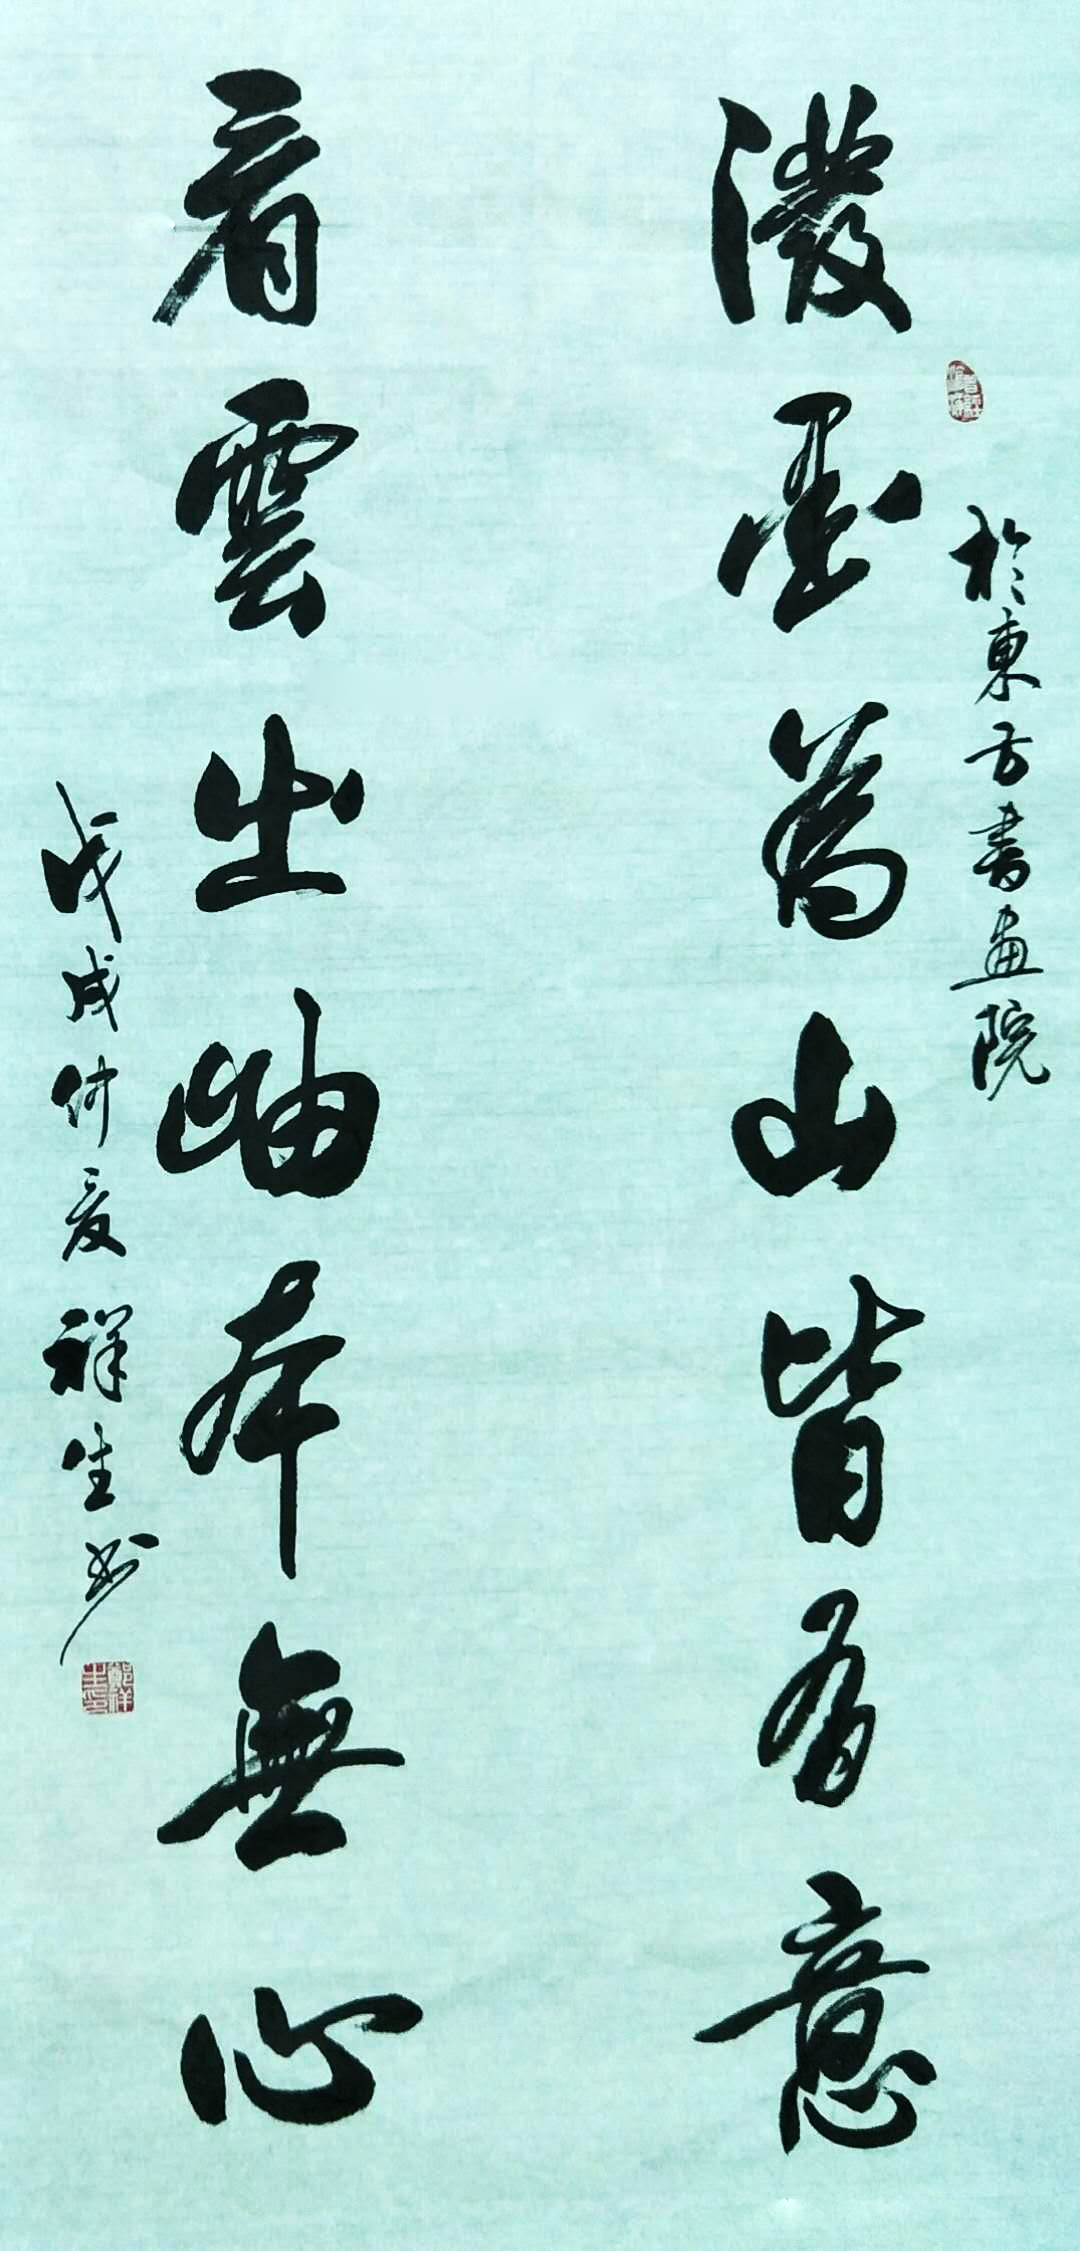 潑墨為山皆有意
看雲出岫本無心
於東方書畫院
戊戌仲夏祥生书